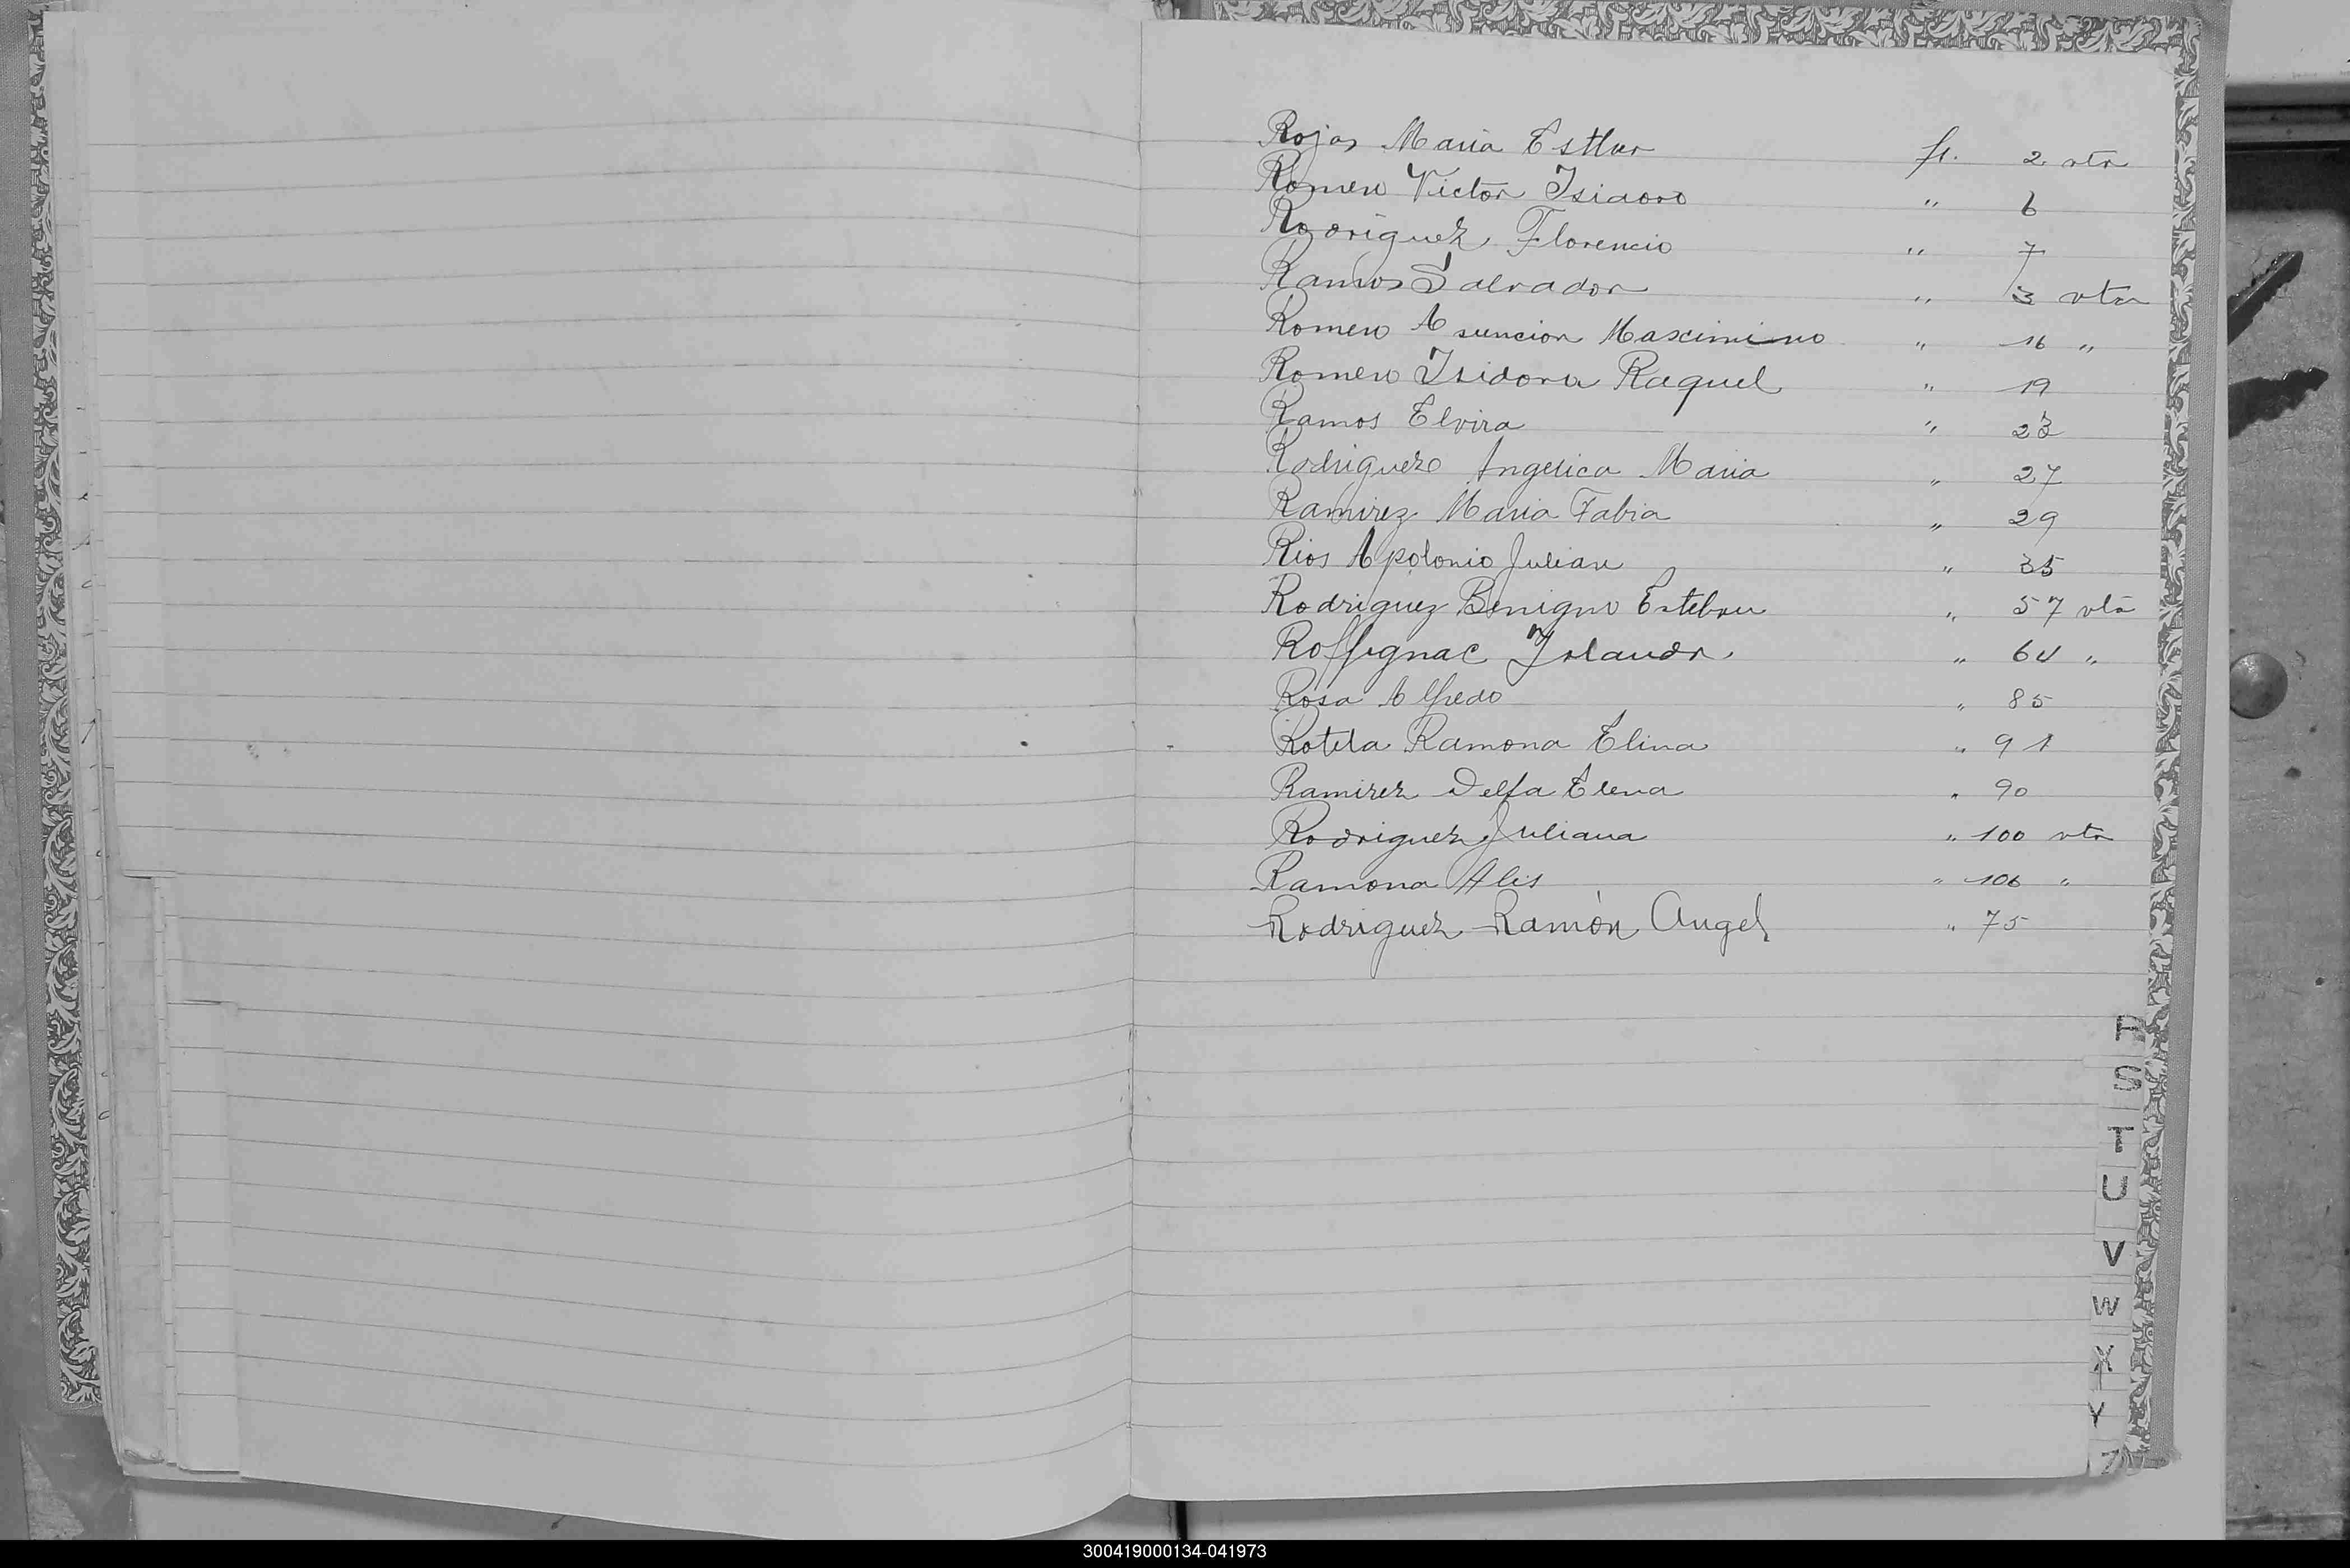 Rojas Maria Esther fs. 2 vta
Romeu Victor Isidoro " 6
Rodriguez Florencio " 7
Ramos Salvador " 13 vta
Romeu Asuncion Maximino " 16 "
Romeu Isidora Raquel " 19
Ramos Elvira " 23
Rodriguez Angelica Maria " 27
Ramirez Maria Fabia " 29
Rios Apolonio Julian " 35
Rodriguez Benigno Esteban " 57 vta
Roffignac Yolanda " 64 "
Rosa Alfredo " 85
Rotela Ramona Elina " 91
Ramirez Delfa Elena " 90
Rodriguez Juliana " 100 vta
Ramona Alis " 106 "
Rodriguez Ramón Angel " 75
R
S
T
U
V
W
X
Y
Z
300419000134-041973